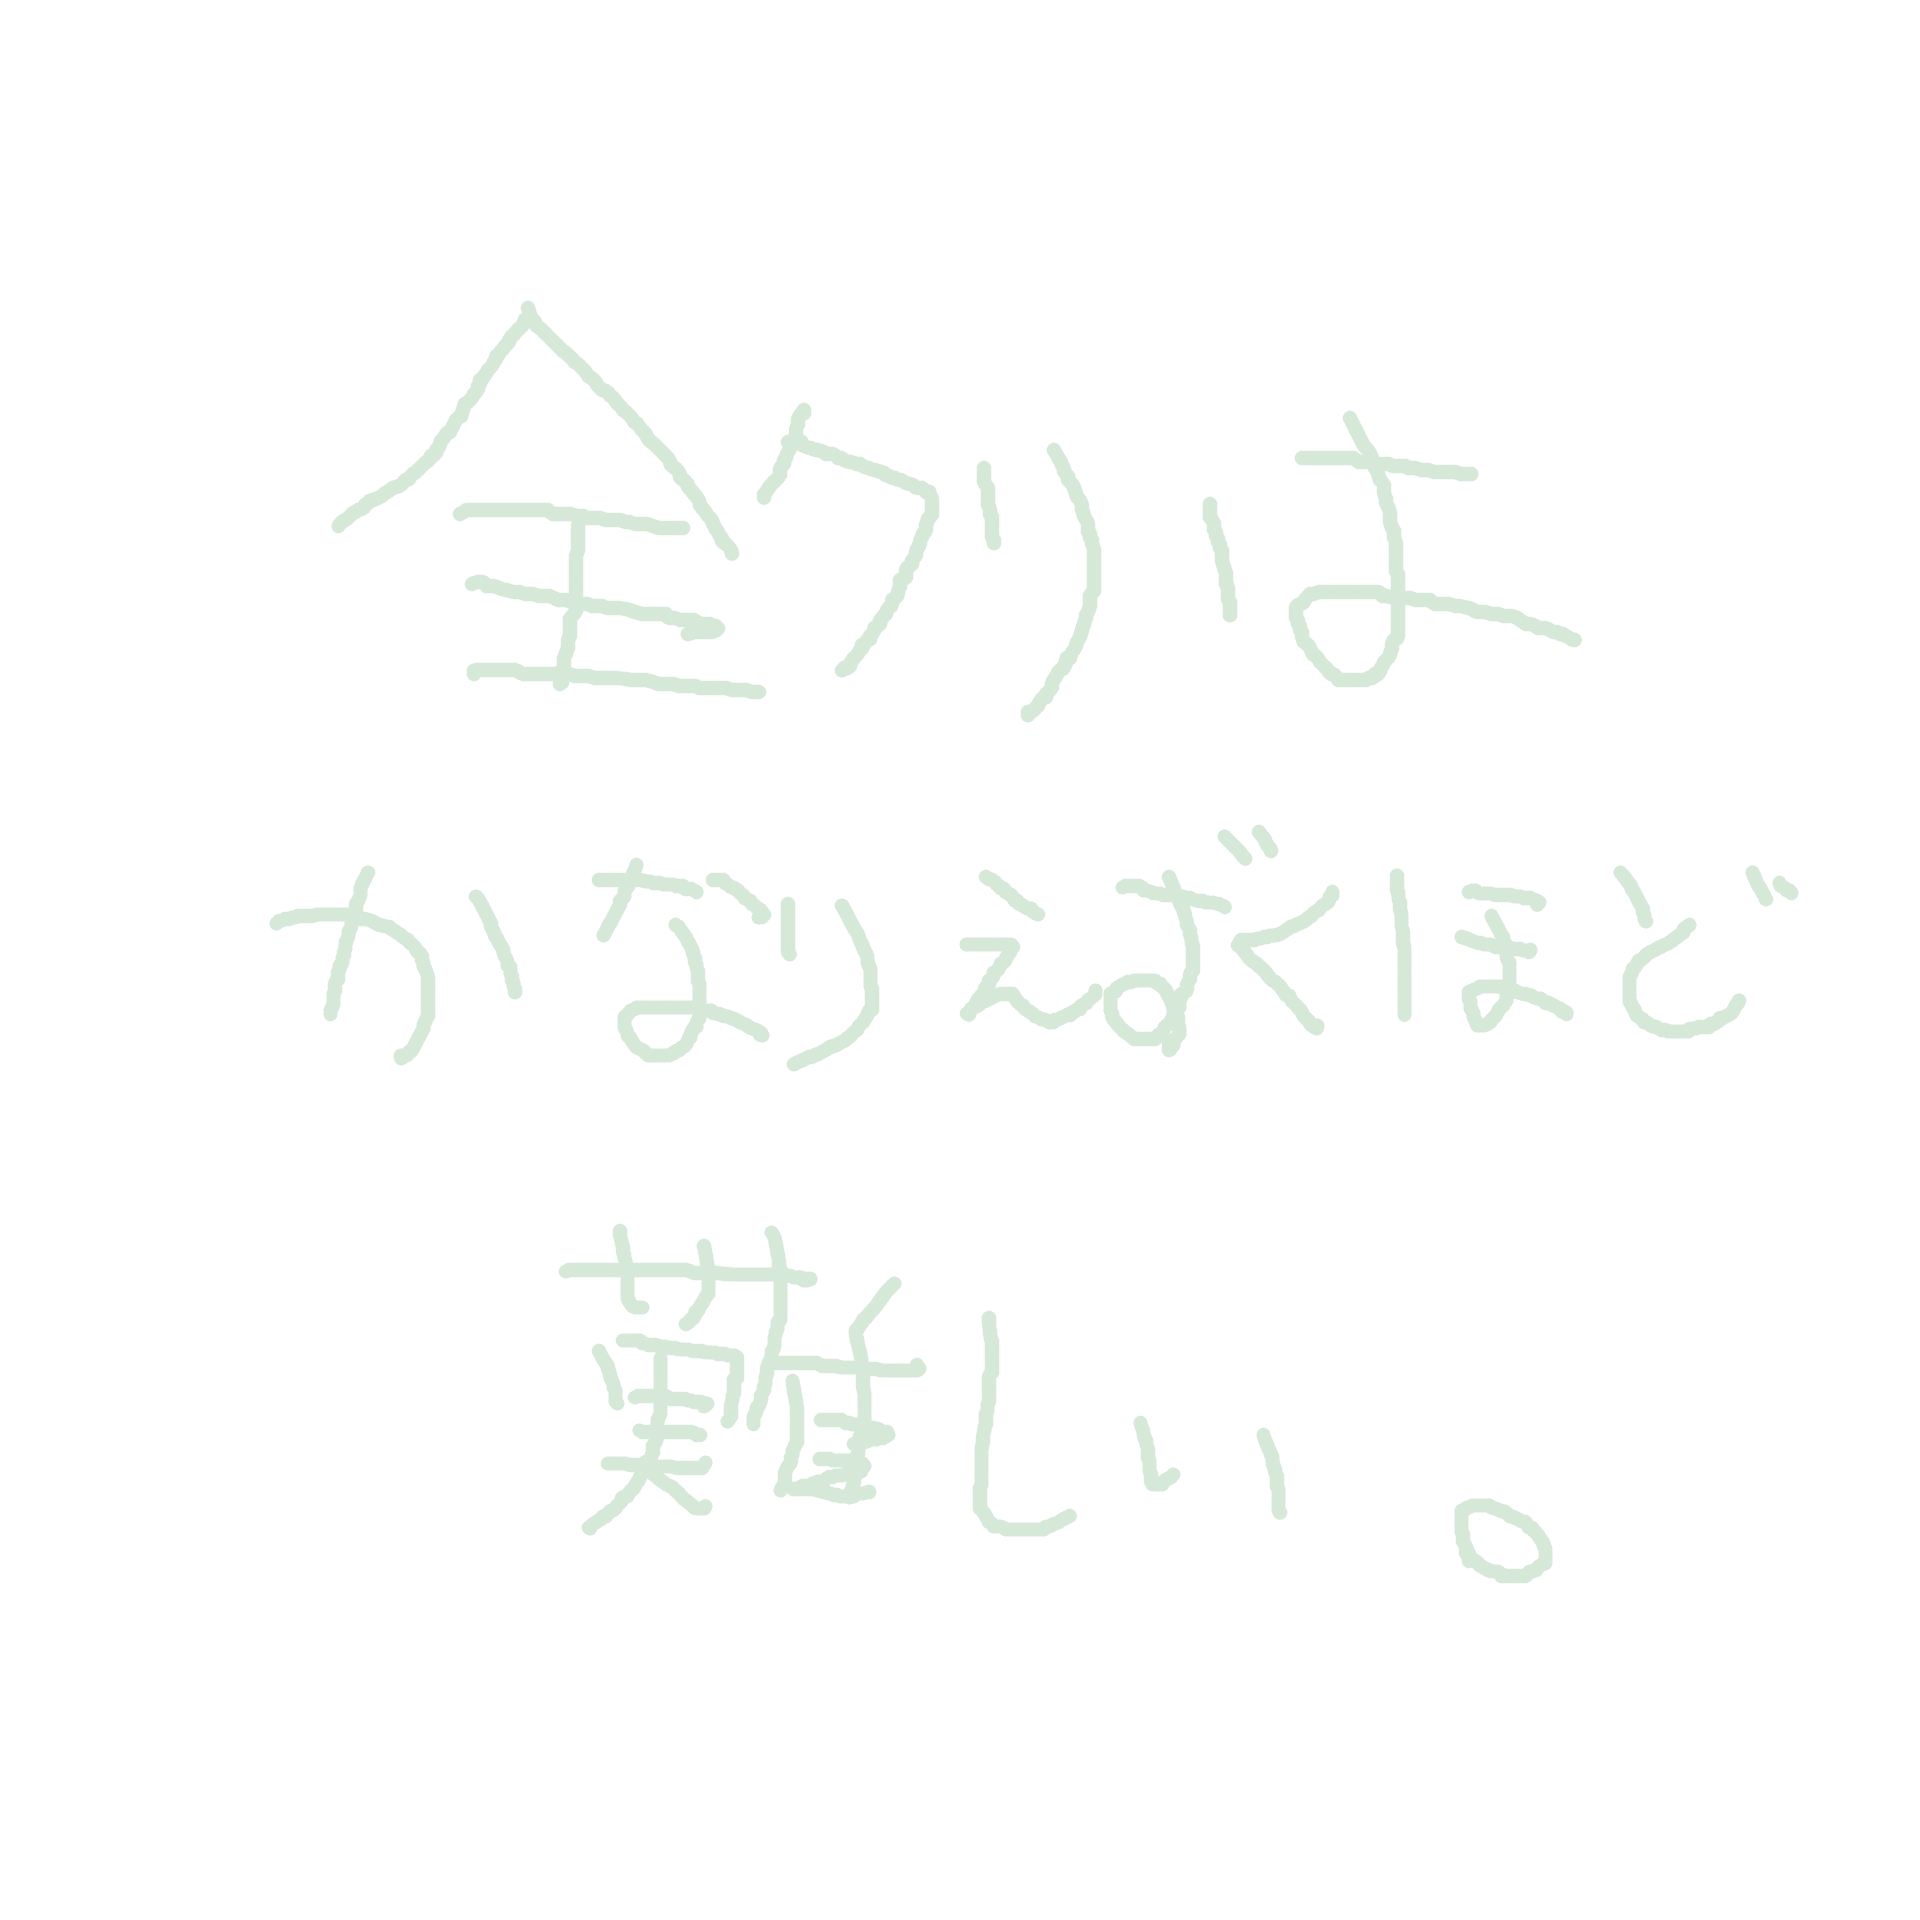 全クリは
かなりえすぐほど
難しい。